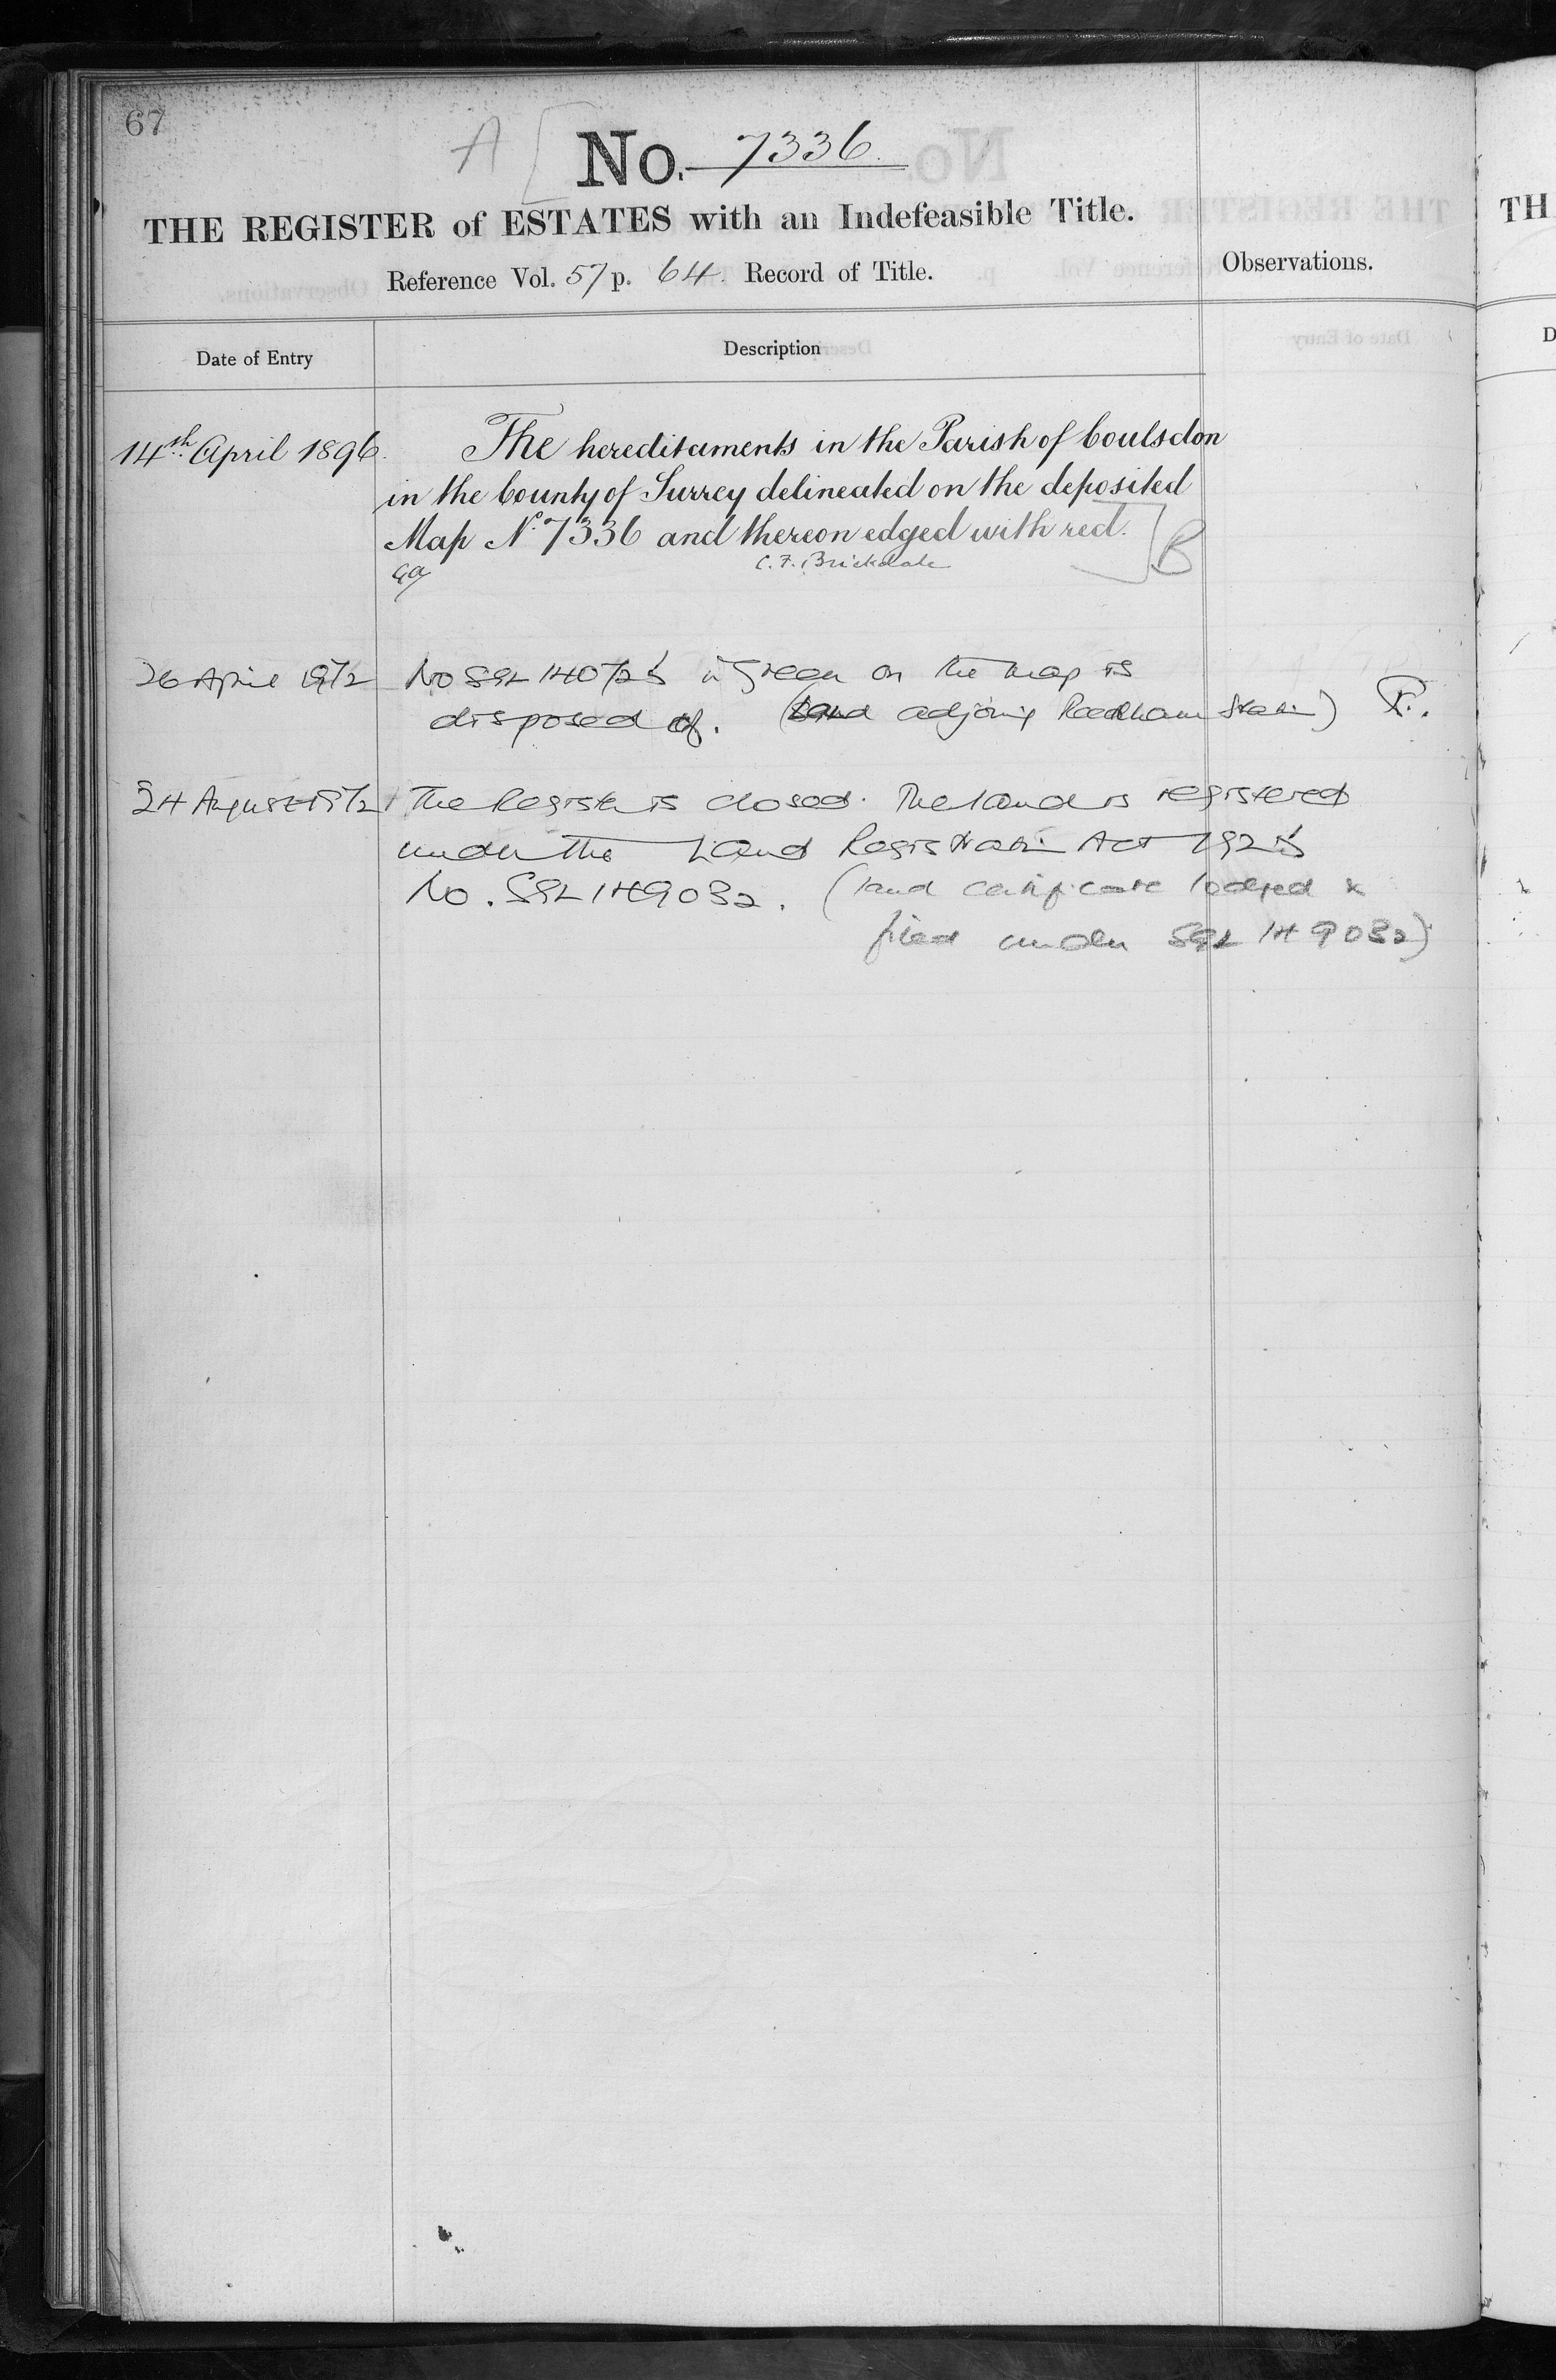 67
A [
No. 7336.
THE REGISTER of ESTATES with an Indefeasible Title.
Reference Vol. 57 p. 64. Record of Title.
Observations.
Date of Entry
Description
14th April 1896.
The hereditaments in the Parish of Coulsdon
in the County of Surrey delineated on the deposited
Map No. 7336 and thereon edged with red. ] B
C. F. Brickdale
26 April 1972
No SGL 140725 in Green on the map is
disposed of. (Land adjoining Reedham Station)
24 August 1972
The Register is closed. The land is registered
under the Land Registration Act 1925
No. SGL 149032. (land certificate lodged &
filed under SGL 149032)
TH
D